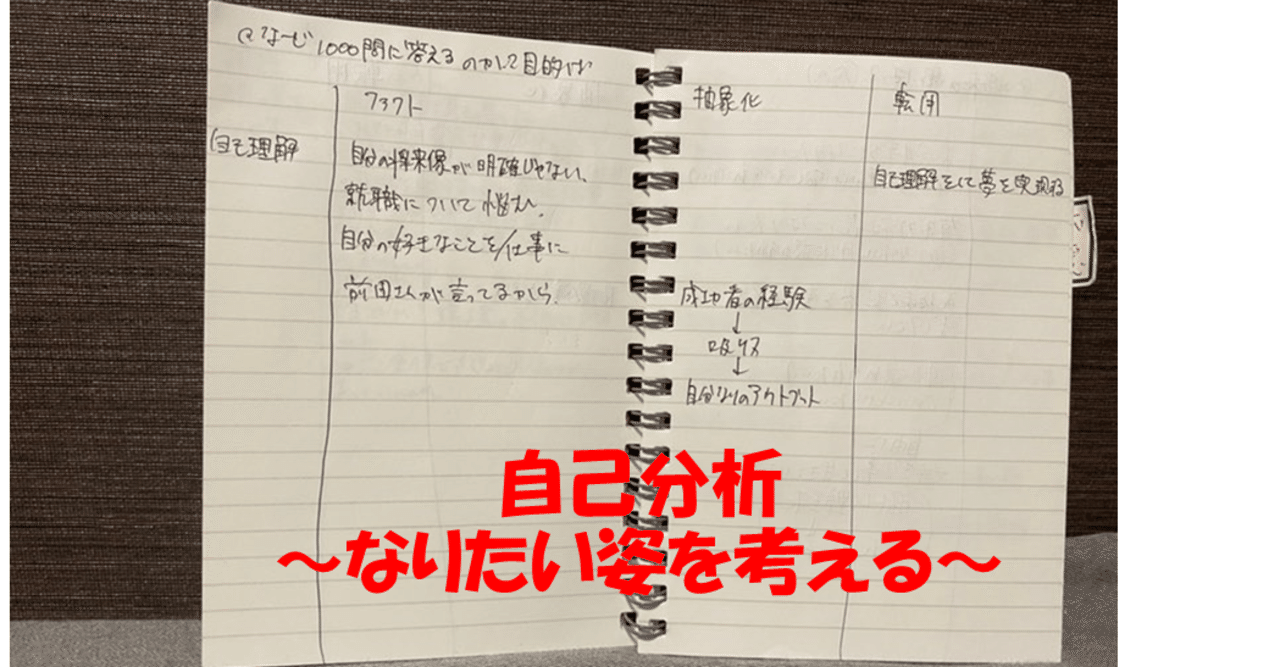 Q なぜ1000問に答えるのかして目的は
ファクト
自己理解
自分の将来像が明確じゃない、
就職について悩む、
自分の好きなことを仕事に
前田さんが言ってるから、
抽象化
成功者の経験
↓
吸収
↓
自分なりのアウトプット
転用
自己理解をして夢を実現する
自己分析
～なりたい姿を考える～